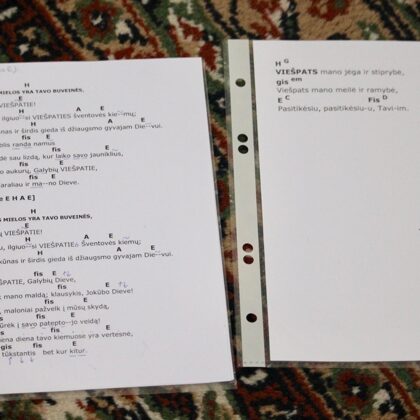 H
MIELOS YRA TAVO BUVEINĖS,
E
VIEŠPATIE!
H A E
ilgiuosi VIEŠPATIES šventovės kiemų;
kūnas ir širdis gieda iš džiaugsmo gyvajam Dievui.
fis E
randa namus
fis E
dė sau lizdą, kur laiko savo jauniklius,
fis E
aukurų, Galybių VIEŠPATIE,
fis E
Karaliau ir mano Dieve.
E H A E]
H
MIELOS TAVO BUVEINĖS,
E
VIEŠPATIE!
H A E
ilgiuosi VIEŠPATIES šventovės kiemų;
H A E
kūnas ir širdis gieda iš džiaugsmo gyvajam Dievui.
fis E
Galybių Dieve,
fis E
mano maldą; klausykis, Jokūbo Dieve!
fis E
maloniai pažvelk į mūsų skydą,
fis E
žiūrėk į savo pateptojo veidą!
fis E
diena tavo kiemuose yra vertesnė,
gis fis E
tūkstantis bet kur kitur.
H G
VIEŠPATS mano jėga ir stiprybė,
gis em
Viešpats mano meilė ir ramybė,
E C Fis D
Pasitikėsiu, pasitikėsiu-u, Tavi-im.